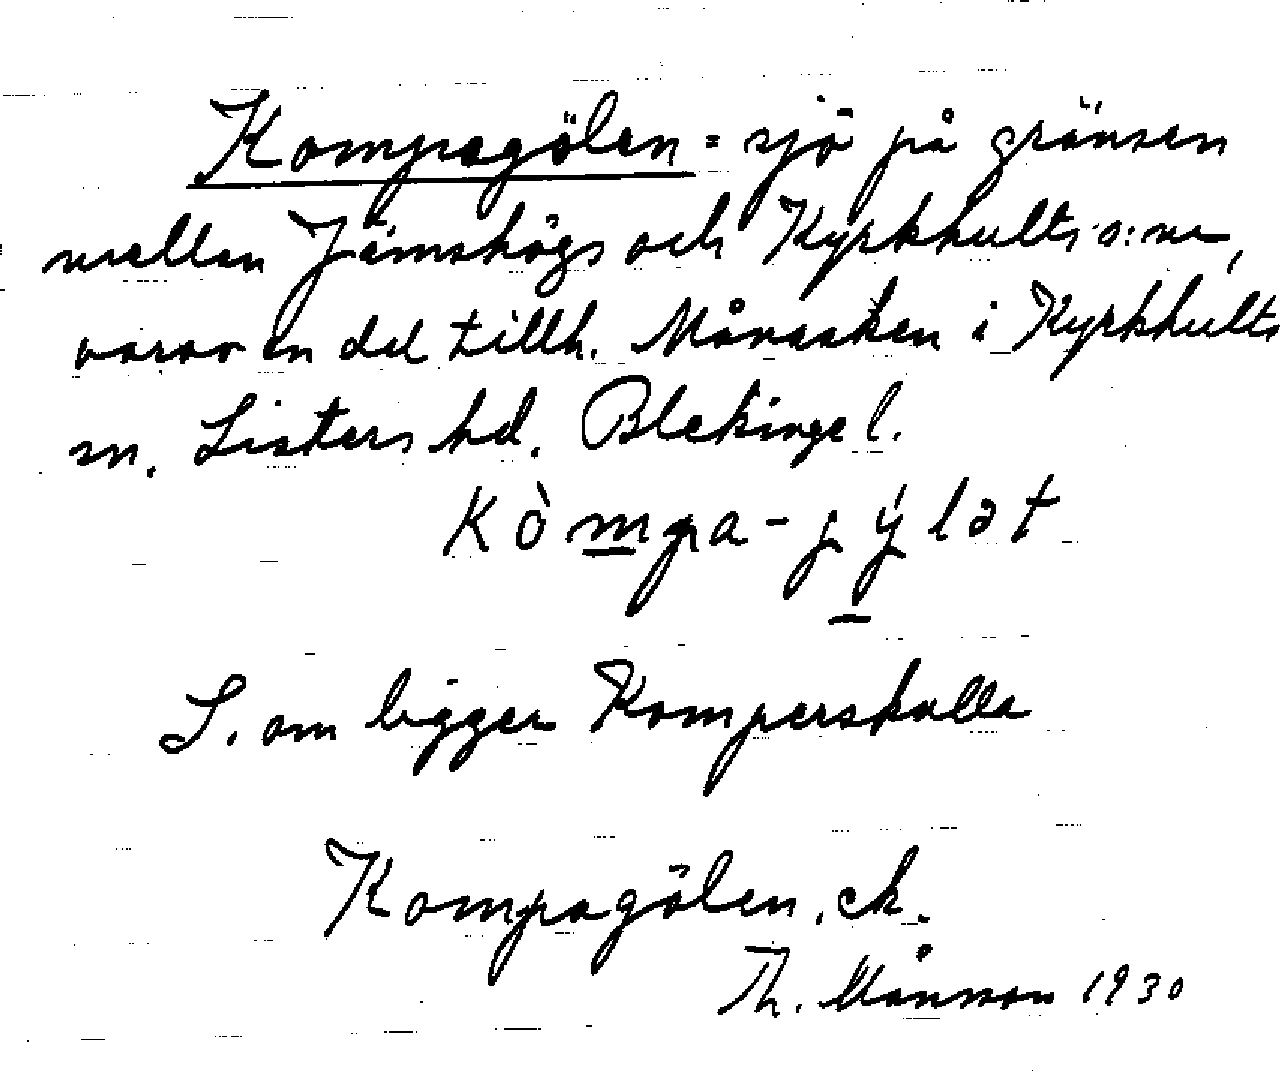 Kompagölen = sjö på gränsen
mellan Jämshögs och Kyrkhults s:nr,
varav en del tillh. Månasken i Kyrkhults
sn. Listers hd. Blekinge l.
Kòmpa-jýlət
S. om ligger Komperskulla
Kompagölen, ek.
Th. Månsson 1930